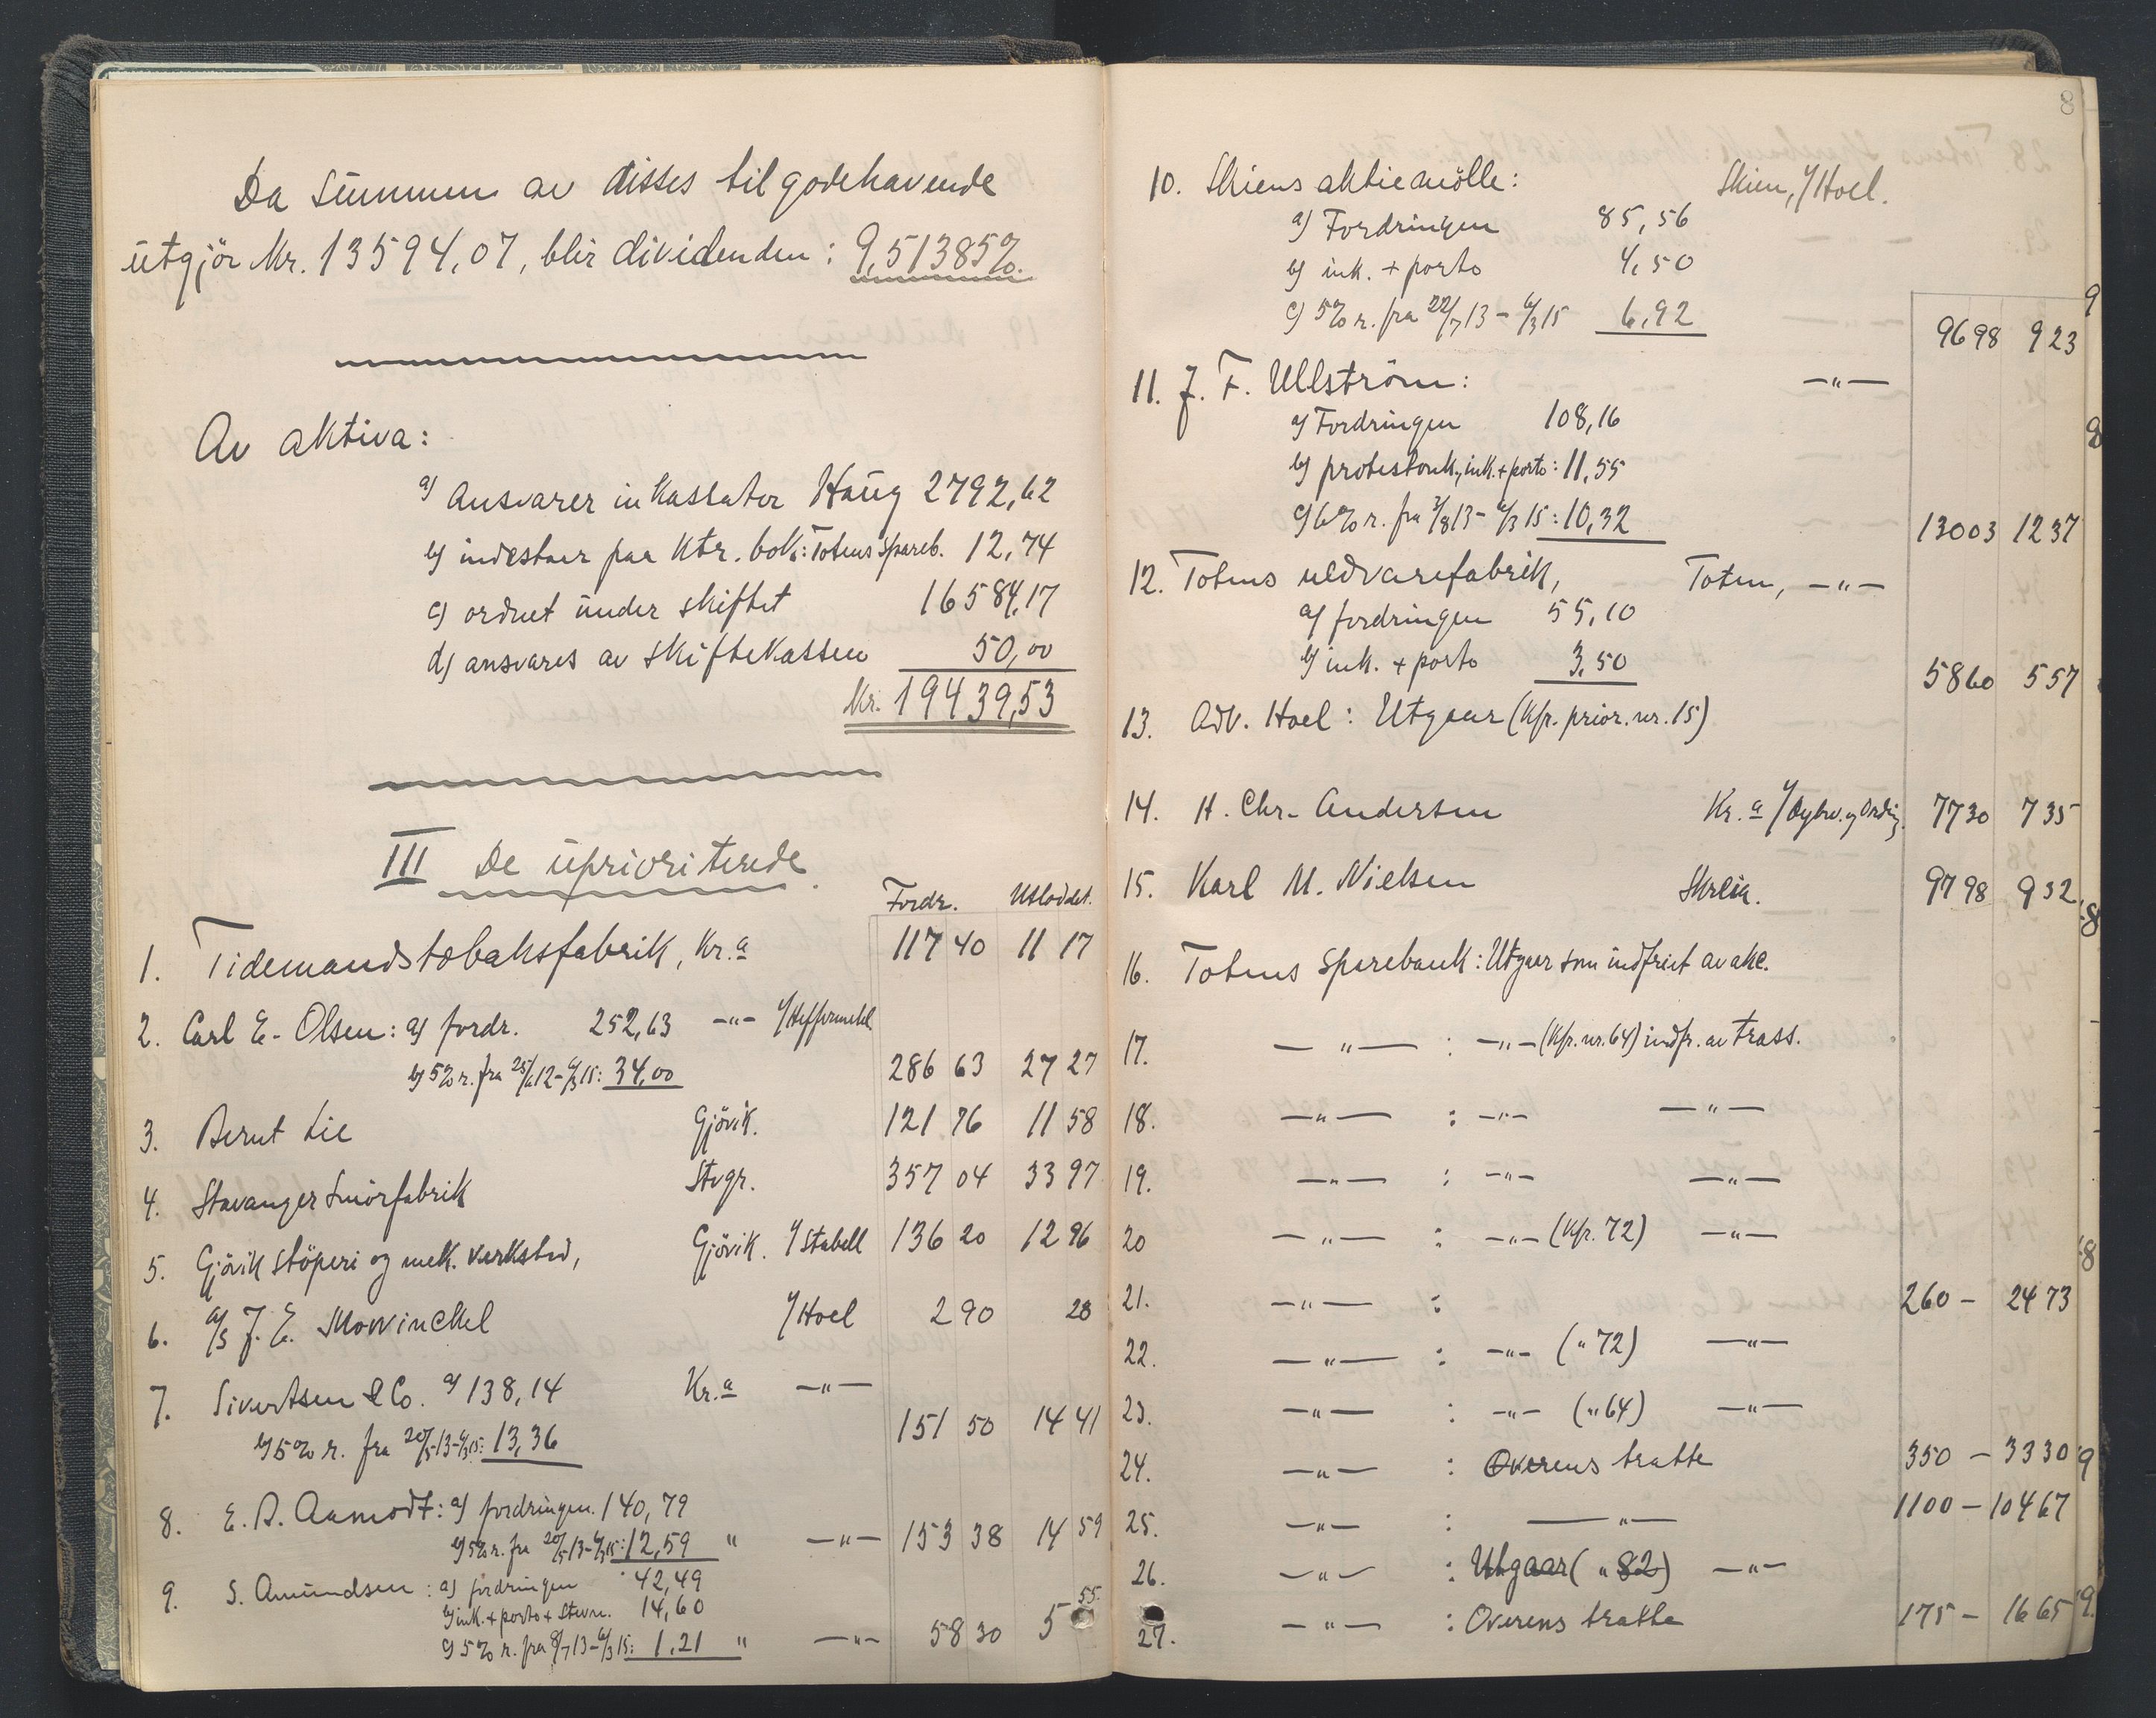 Da summen av disses tilgodehavende
utgjör Kr. 13594,07, blir dividenden: 9,51385%.
Av aktiva:
a) Ansvarer inkassator Haug 2792,62
b) indestaar paa Ktr. bok i Totens Spareb. 12,74
c) ordnet under skiftet 16584,17
d) ansvares av skiftekassen 50,00
Kr. 19439,53
III De uprioriterede.
Fordr. Utloddet.
1. Tidemands tobaksfabrik, Kr.a 117 40 11 17
2. Carl E. Olsen: a) fordr. 252,63 -"- v/Heffermehl
b) 5% r. fra 25/6 12 - 6/3 15: 34,00 286 63 27 27
3. Bernt Lie Gjövik. 121 76 11 58
4. Stavanger Smörfabrik Stvgr. 357 04 33 97
5. Gjövik Stöperi og mek. verksted, Gjövik. v/Stabell 136 20 12 96
6. a/s J. E. Mowinckel v/Hoel 2 90 28
7. Sivertsen & Co. a) 138,14 Kr.a -"-
b) 5% r. fra 20/5 13 - 6/3 15: 13,36 151 50 14 41
8. E. A. Aamodt: a) fordringen. 140,79
b) 5% r. fra 20/5 13 - 6/3 15: 12,59 " -"- 153 38 14 59
9. S. Amundsen: a) fordringen 42,49
b) ink. + porto + stevn. 14,60
c) 5% r. fra 8/7 13 - 6/3 15: 1,21 " -"- 58 30 5 55.
8
10. Skiens aktiemölle: Skien, v/Hoel.
a) Fordringen 85,56
b) ink. + porto 4,50
c) 5% r. fra 22/7 13 - 6/3 15 6,92
96 98 9 23
11. J. F. Ullström: -"-
a) Fordringen 108,16
b) protestomk., ink. + porto: 11,55
c) 6% r. fra 3/8 13 - 6/3 15: 10,32
130 03 12 37
12. Totens uldvarefabrik, Toten, -"-
a) fordringen 55,10
b) ink. + porto 3,50
58 60 5 57
13. Adv. Hoel: Utgaar (Kfr. prior. nr. 15)
14. H. Chr. Andersen Kr.a 77 30 7 35
15. Karl M. Nielsen Skreia. 97 98 9 32
16. Totens Sparebank: Utgaar som indfriet av akc.
17. -"- : -"- (Kfr. nr. 64) indfr. av Trass.
18. -"- : -"- -"-
19. -"- : -"- -"-
20 -"- : -"- (Kfr. 72) -"-
21. -"- : 260 - 24 73
22. -"- : -"- (" 72) -"-
23. -"- : -"- (" 64) -"-
24. -"- : Overens tratte 350 - 33 30
25. -"- : -"- 1100 - 104 67
26. -"- : Utgaar (" 82) -"-
27. -"- : Overens tratte 175 - 16 65